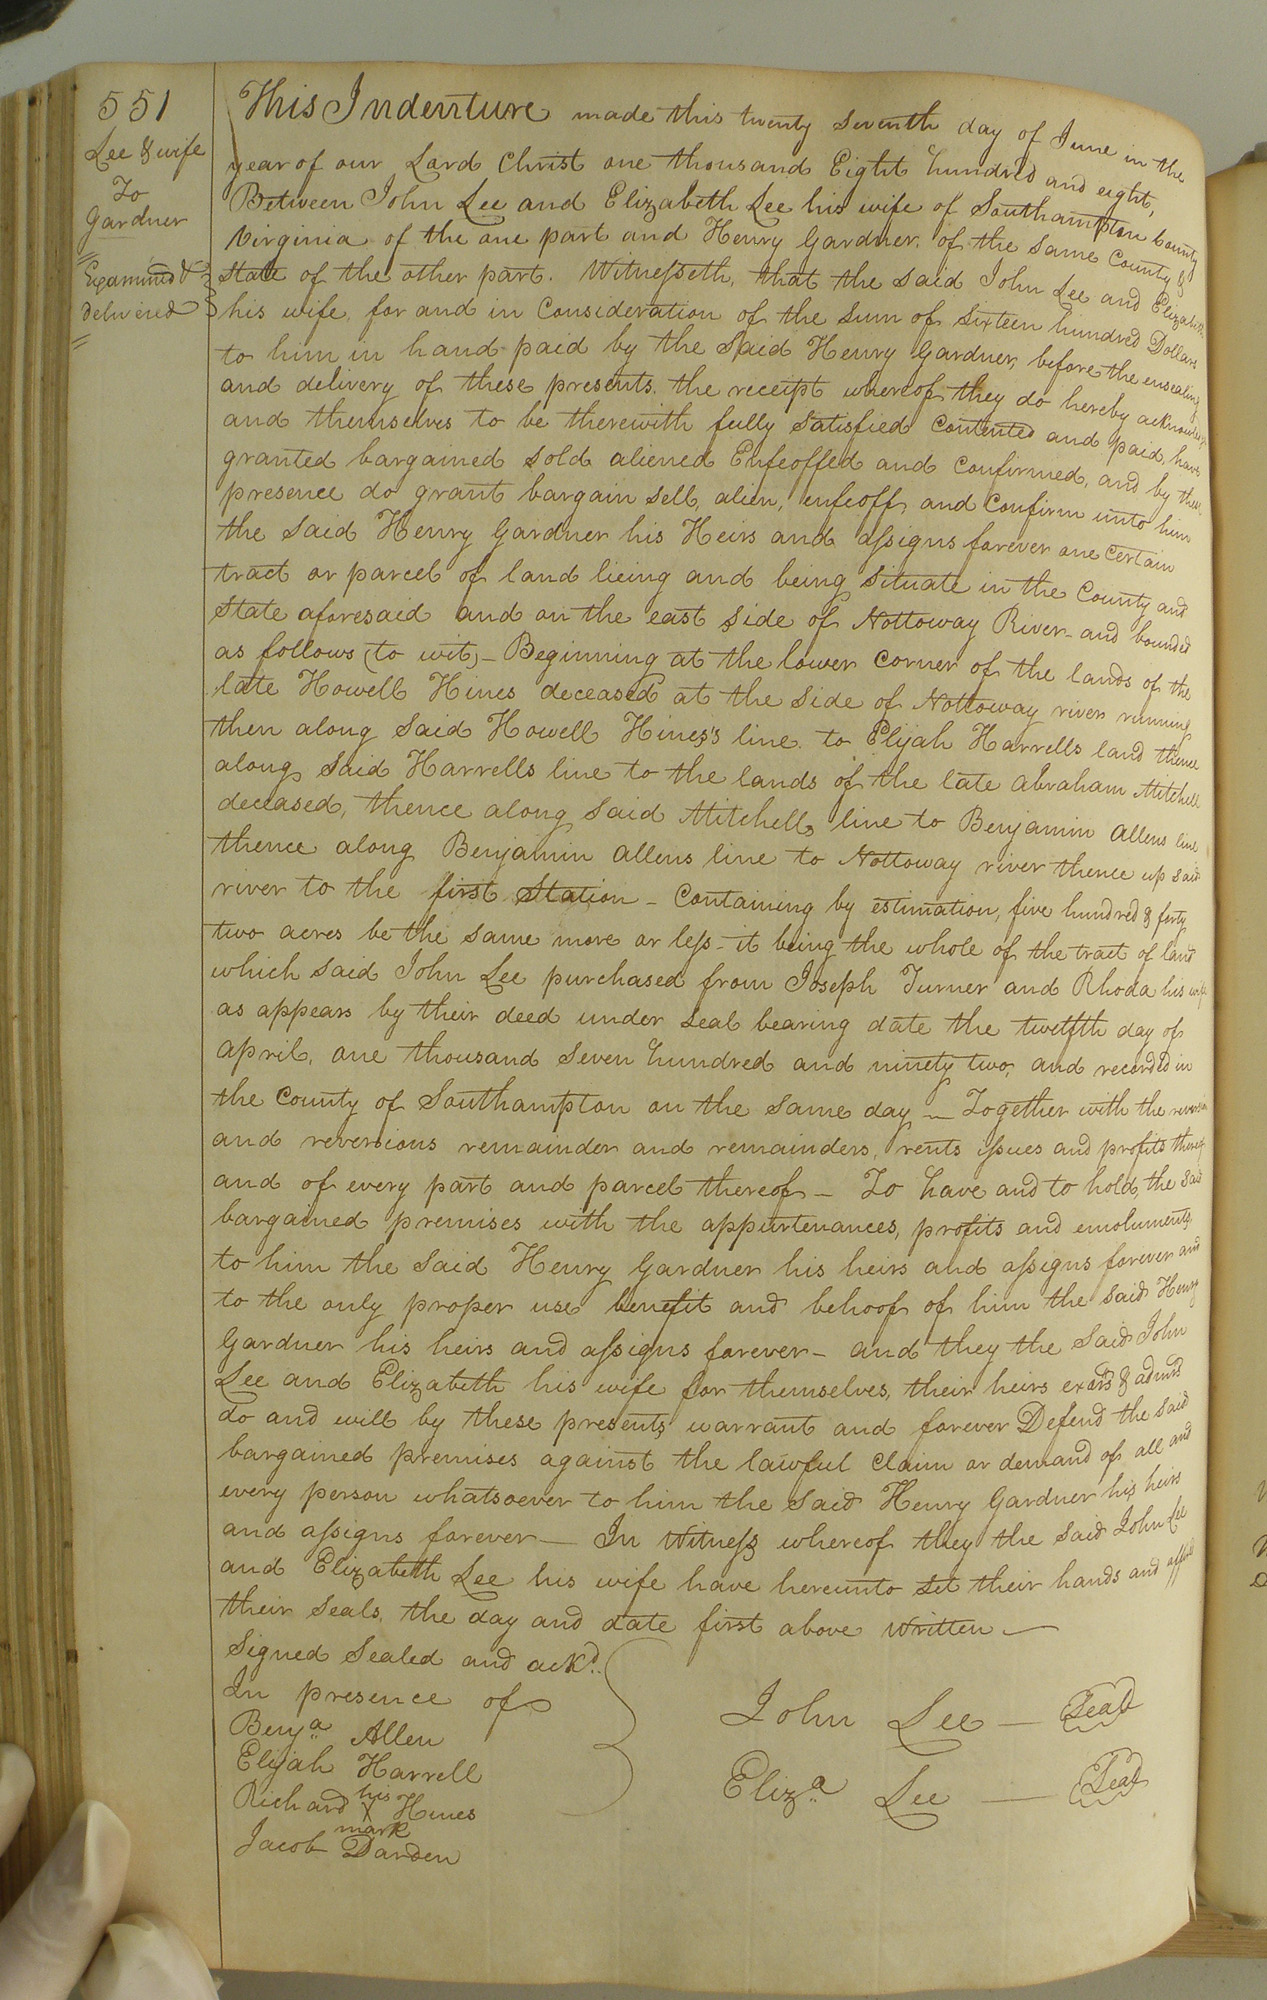 551
Lee & wife
To
Gardner
Examined &
delivered
This Indenture made this twenty seventh day of June in the
year of our Lord Christ one thousand Eight hundred and eight,
Between John Lee and Elizabeth Lee his wife of Southampton County
Virginia of the one part and Henry Gardner of the same County &
State of the other part. Witnesseth, that the said John Lee and Elizabeth
his wife, for and in Consideration of the Sum of Sixteen hundred Dollars
to him in hand paid by the Said Henry Gardner, before the ensealing
and delivery of these presents. the receipt whereof they do hereby acknowledge
and themselves to be therewith fully Satisfied Contented and paid, have
granted bargained Sold aliened Enfeoffed and Confirmed, and by these
presence do grant bargain sell, alien, enfeoff, and Confirm unto him
the Said Henry Gardner his Heirs and assigns forever one Certain
tract or parcel of land lieing and being Situate in the County and
State aforesaid and on the east Side of Nottoway River - and bounded
as follows (to wit) - Beginning at the lower Corner of the lands of the
late Howell Hines deceased at the Side of Nottoway river running
then along Said Howell Hines's line to Elijah Harrells land thence
along Said Harrells line to the lands of the late Abraham Mitchell
deceased, thence along Said Mitchells line to Benjamin Allens line
thence along Benjamin Allens line to Nottoway river thence up said
river to the first Station - Containing by estimation, five hundred & forty
two acres be the Same more or less - it being the whole of the tract of land
which Said John Lee purchased from Joseph Turner and Rhoda his wife
as appears by their deed under Seal bearing date the twelfth day of
April, one thousand Seven hundred and ninety two, and recorded in
the County of Southampton on the Same day - Together with the reversion
and reversions remainder and remainders, rents issues and profits thereof
and of every part and parcel thereof - To have and to hold, the Said
bargained premises with the appurtenances, profits and emoluments
to him the Said Henry Gardner his heirs and assigns forever and
to the only proper use benefit and behoof of him the Said Henry
Gardner his heirs and assigns forever - and they the Said John
Lee and Elizabeth his wife for themselves, their heirs exors & admrs
do and will by these presents warrant and forever Defend the Said
bargained premises against the lawful Claim or demand of all and
every person whatsoever to him the Said Henry Gardner his heirs
and assigns forever - In Witness whereof they the Said John Lee
and Elizabeth Lee his wife have hereunto Set their hands and affixed
their Seals, the day and date first above Written -
Signed Sealed and ackd.
In presence of
Benja Allen
Elijah Harrell
Richard his X mark Hines
Jacob Darden
John Lee - Seal
Eliza Lee - Seal